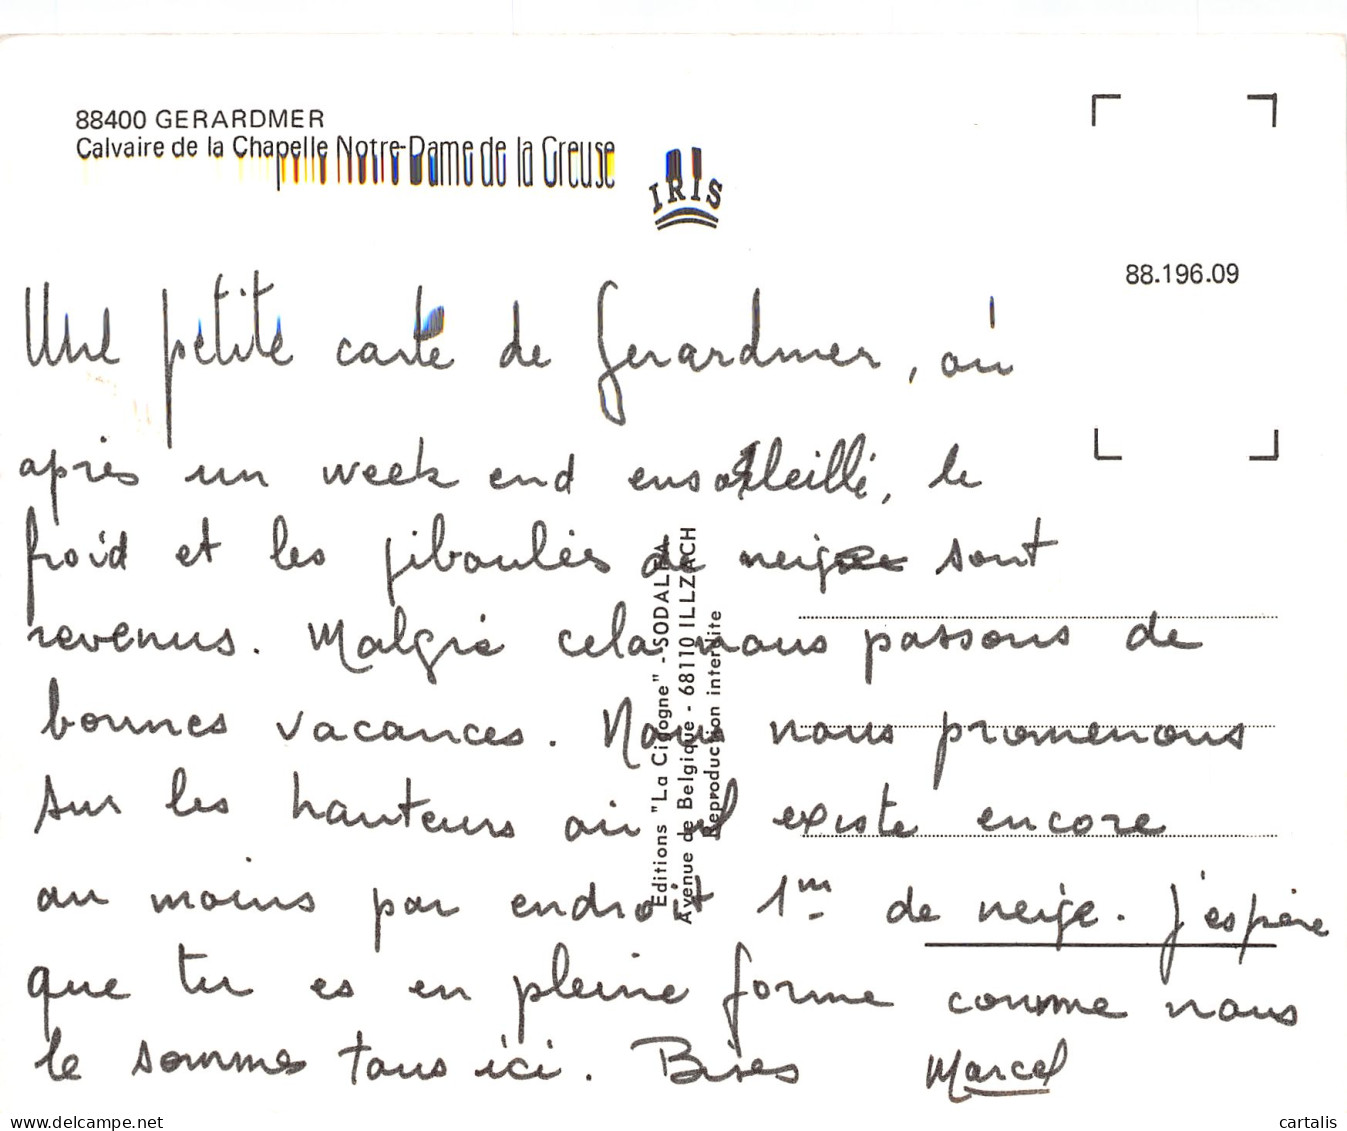 88400 GERARDMER
Calvaire de la Chapelle Notre-Dame de la Creuse
IRIS
88.196.09
Une petite carte de Gerardmer, où
après un week end ensoleillé, le
froid et les giboulées de neige sont
revenus. Malgré cela nous passons de
bonnes vacances. Nous nous promenons
sur les hauteurs où il existe encore
au moins par endroit 1m de neige. J'espère
que tu es en pleine forme comme nous
le sommes tous ici. Bises Marcel
Editions "La Cigogne" - SODALFA
Avenue de Belgique - 68110 ILLZACH
Reproduction interdite
delcampe.net
cartalis